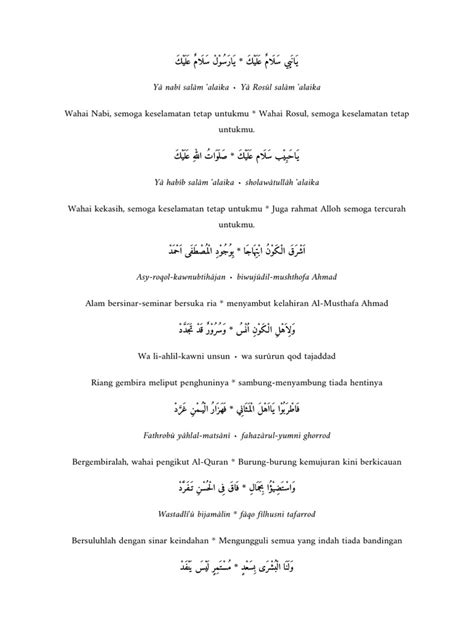 يَانَبِي سَلَامٌ عَلَيْكَ * يَارَسُوْلْ سَلَامٌ عَلَيْكَ
Yā nabī salām 'alaika • Yā Rosūl salām 'alaika
Wahai Nabi, semoga keselamatan tetap untukmu * Wahai Rosul, semoga keselamatan tetap
untukmu.
يَاحَبِيْب سَلَام عَلَيْكَ * صَلَوَاتُ اللهِ عَلَيْكَ
Yā habīb salām 'alaika • sholawātullāh 'alaika
Wahai kekasih, semoga keselamatan tetap untukmu * Juga rahmat Alloh semoga tercurah
untukmu.
اَشْرَقَ الْكَوْنُ ابْتِهَاجَا * بِوُجُوْدِ الْمُصْطَفَى اَحْمَدْ
Asy-roqol-kawnubtihājan • biwujūdil-mushthofa Ahmad
Alam bersinar-seminar bersuka ria * menyambut kelahiran Al-Musthafa Ahmad
وَلِاَهْلِ الْكَوْنِ اُنْسُ * وَسُرُوْرٌ قَدْ تَجَدَّدْ
Wa li-ahlil-kawni unsun • wa surūrun qod tajaddad
Riang gembira meliput penghuninya * sambung-menyambung tiada hentinya
فَاطْرَبُوْا يَااَهْلَ الْمَثَانِي * فَهَزَارُ الْيُمْنِ غَرَّدْ
Fathrobū yāhlal-matsānī • fahazārul-yumni ghorrod
Bergembiralah, wahai pengikut Al-Quran * Burung-burung kemujuran kini berkicauan
وَاسْتَضِيْؤُا بِجَمَالٍ * فَاقَ فِى الْحُسْنِ تَفَرَّدْ
Wastadlī'ū bijamālin * fāqo filhusni tafarrod
Bersuluhlah dengan sinar keindahan * Mengungguli semua yang indah tiada bandingan
وَلَنَا الْبُشْرَى بِسَعْدٍ * مُسْتَمِرٍ لَيْسَ يَنْفَدْ